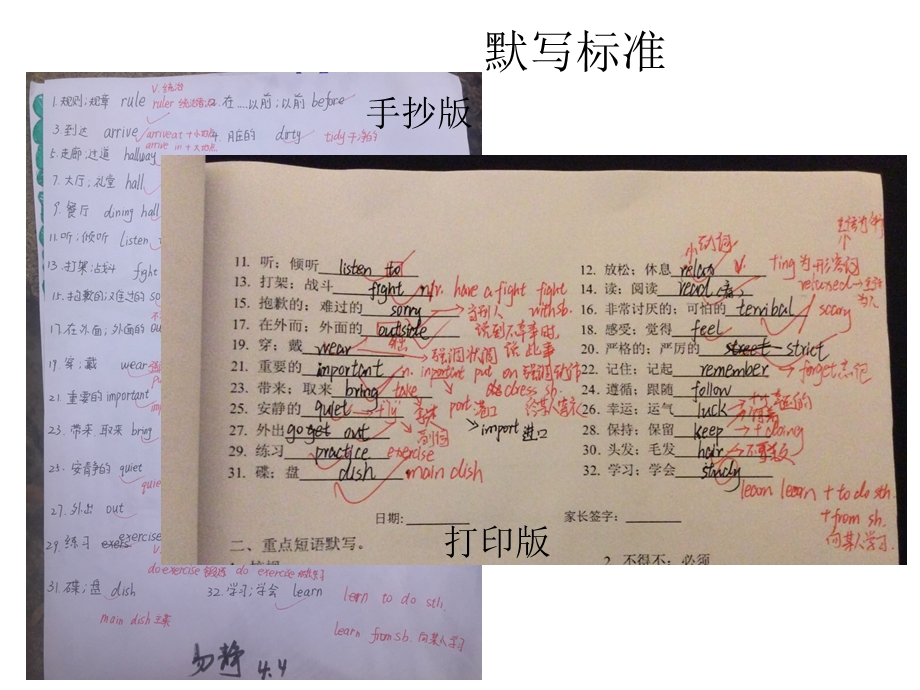 默写标准
手抄版
1.规则;规章 rule
V.统治
ruler 统治者 2.在....以前;以前 before
3.到达 arrive 4.肮脏的 dirty tidy 干净的
arrive at + 小地点
arrive in + 大地点
5.走廊;过道 hallway
7.大厅;礼堂 hall
9.餐厅 dining hall
11.听;倾听 listen
13.打架;战斗 fight
15.抱歉的;难过的 so
17.在外面;外面的 ou
19.穿;戴 wear
21.重要的 important
23.带来.取来 bring
25.安静的 quiet
27.外出 out
29.练习 exers exercise
do exercise do exercise
31.碟;盘 dish 32.学习;学会 learn
learn to do sth.
main dish 主菜
learn from sb. 向某人学习
易静 4.4
小动词
11. 听;倾听 listen to 12. 放松;休息 relax V.
ting 为形容词
13. 打架;战斗 fight n/v. have a fight fight with sb. 14. 读;阅读 read
15. 抱歉的;难过的 sorry 16. 非常讨厌的;可怕的 terribal scary
17. 在外面;外面的 outside 18. 感受;觉得 feel
19. 穿;戴 wear 强调状态 20. 严格的;严厉的 street strict
21. 重要的 important n. import put on 强调动作 22. 记住;记起 remember forget 忘记
dress sb. 给某人穿衣
23. 带来;取来 bring take port 港口 24. 遵循;跟随 follow
25. 安静的 quiet +ly 副词 26. 幸运;运气 luck +y 幸运的
import 进口
27. 外出 go get out 28. 保持;保留 keep + doing
29. 练习 practice exercise 30. 头发;毛发 hair 不可数
31. 碟;盘 dish main dish 32. 学习;学会 study
learn learn + to do sth.
+ from sb.
向某人学习.
日期: 家长签字:
打印版
二、重点短语默写。
2. 不得不;必须